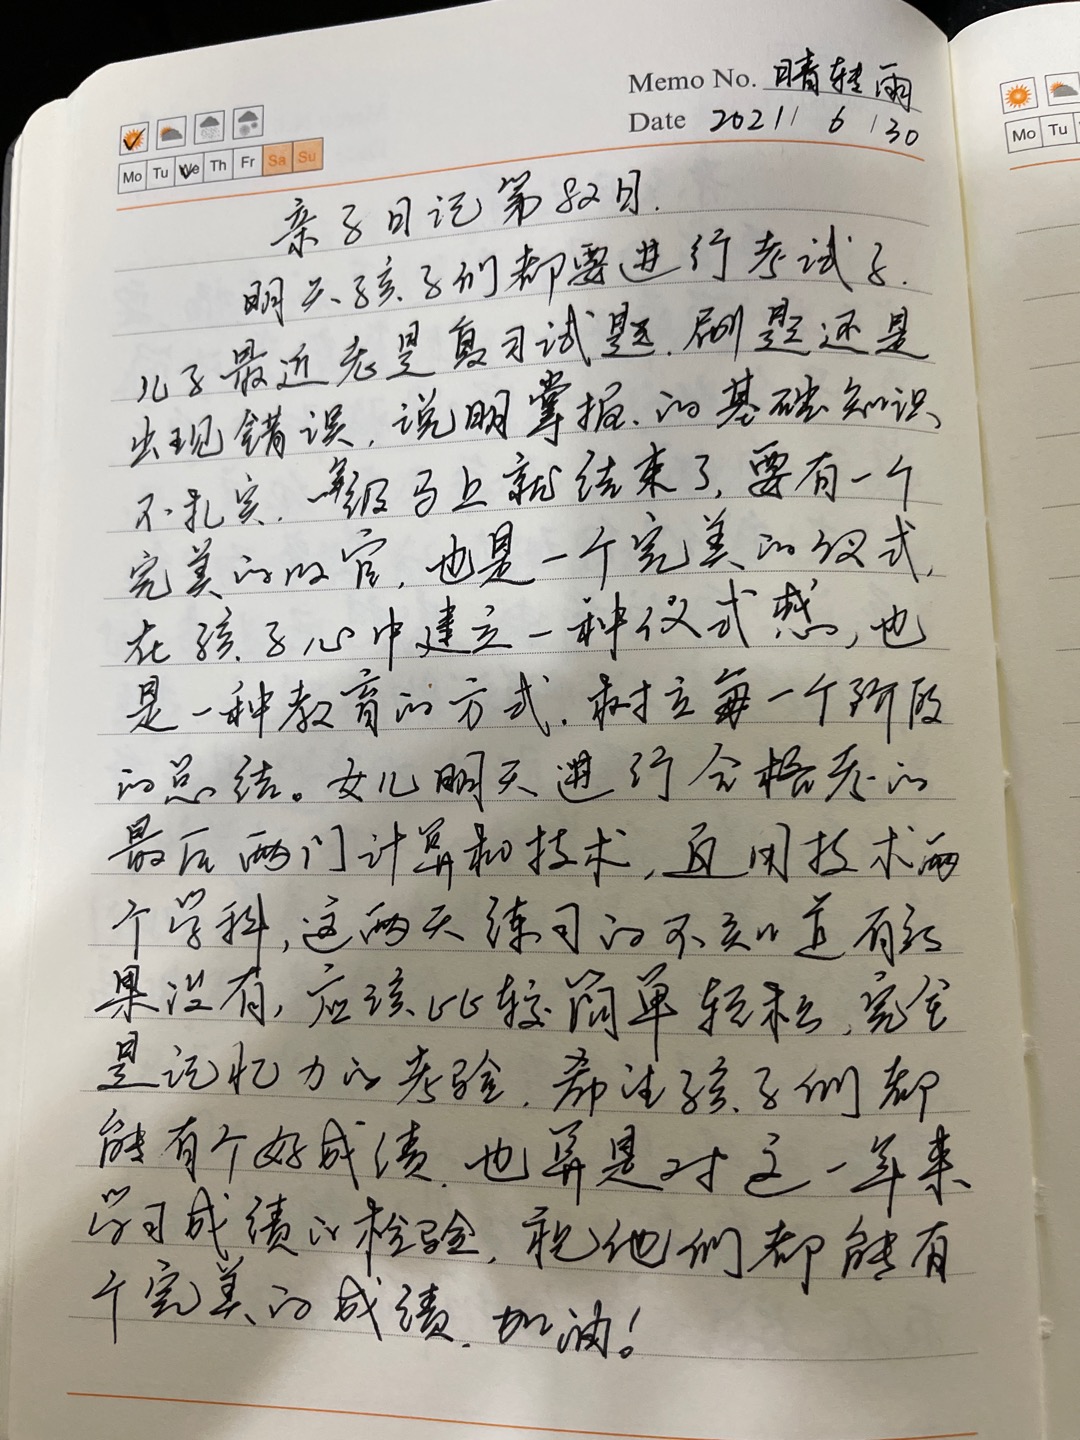 Memo No. 晴转雨
Date 2021/ 6 /30
Mo Tu We Th Fr Sa Su
Mo Tu
亲子日记第82日.
明天孩子们都要进行考试了.
儿子最近老是复习试题.刷题还是
出现错误,说明掌握的基础知识
不扎实.年级马上就结束了,要有一个
完美的收官,也是一个完美的仪式,
在孩子心中建立一种仪式感,也
是一种教育的方式.树立每一个阶段
的总结。女儿明天进行合格考的
最后两门计算机技术,通用技术两
个学科,这两天练习的不知道有效
果没有,应该比较简单轻松,完全
是记忆力的考验.希望孩子们都
能有个好成绩.也算是对这一年来
学习成绩的检验,祝他们都能有
个完美的成绩.加油!